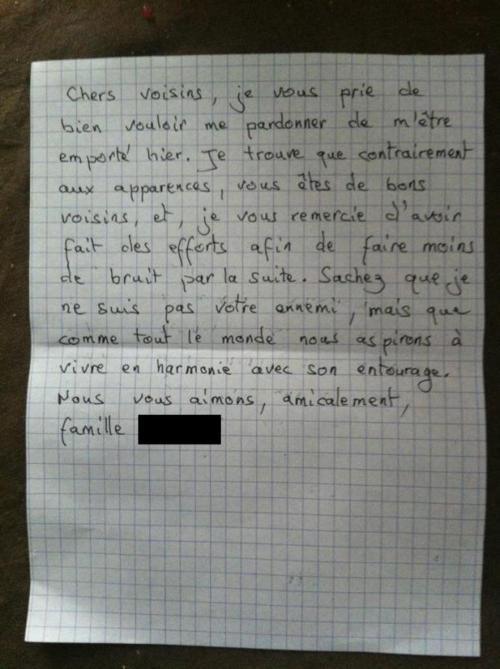 Chers voisins, je vous prie de
bien vouloir me pardonner de m'être
emporté hier. Je trouve que contrairement
aux apparences, vous êtes de bons
voisins, et, je vous remercie d'avoir
fait des efforts afin de faire moins
de bruit par la suite. Sachez que je
ne suis pas votre ennemi, mais que
comme tout le monde nous aspirons à
vivre en harmonie avec son entourage.
Nous vous aimons, amicalement,
famille